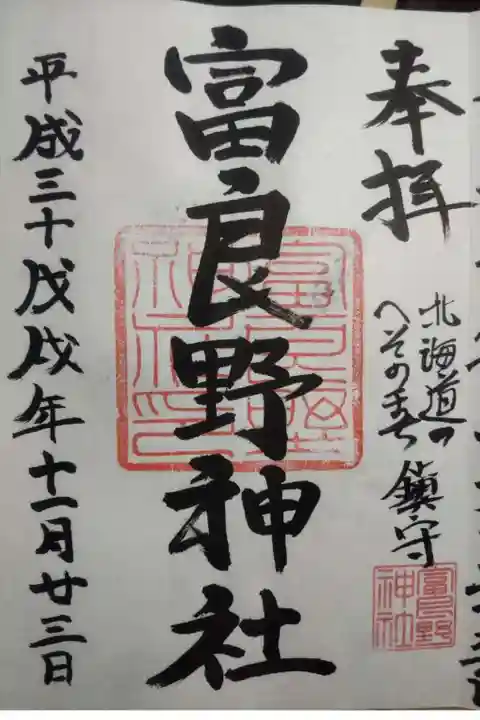 奉拝
北海道の
へそのまち
鎮守
富良野
神社
富良野神社
平成三十戊戌年十一月廿三日